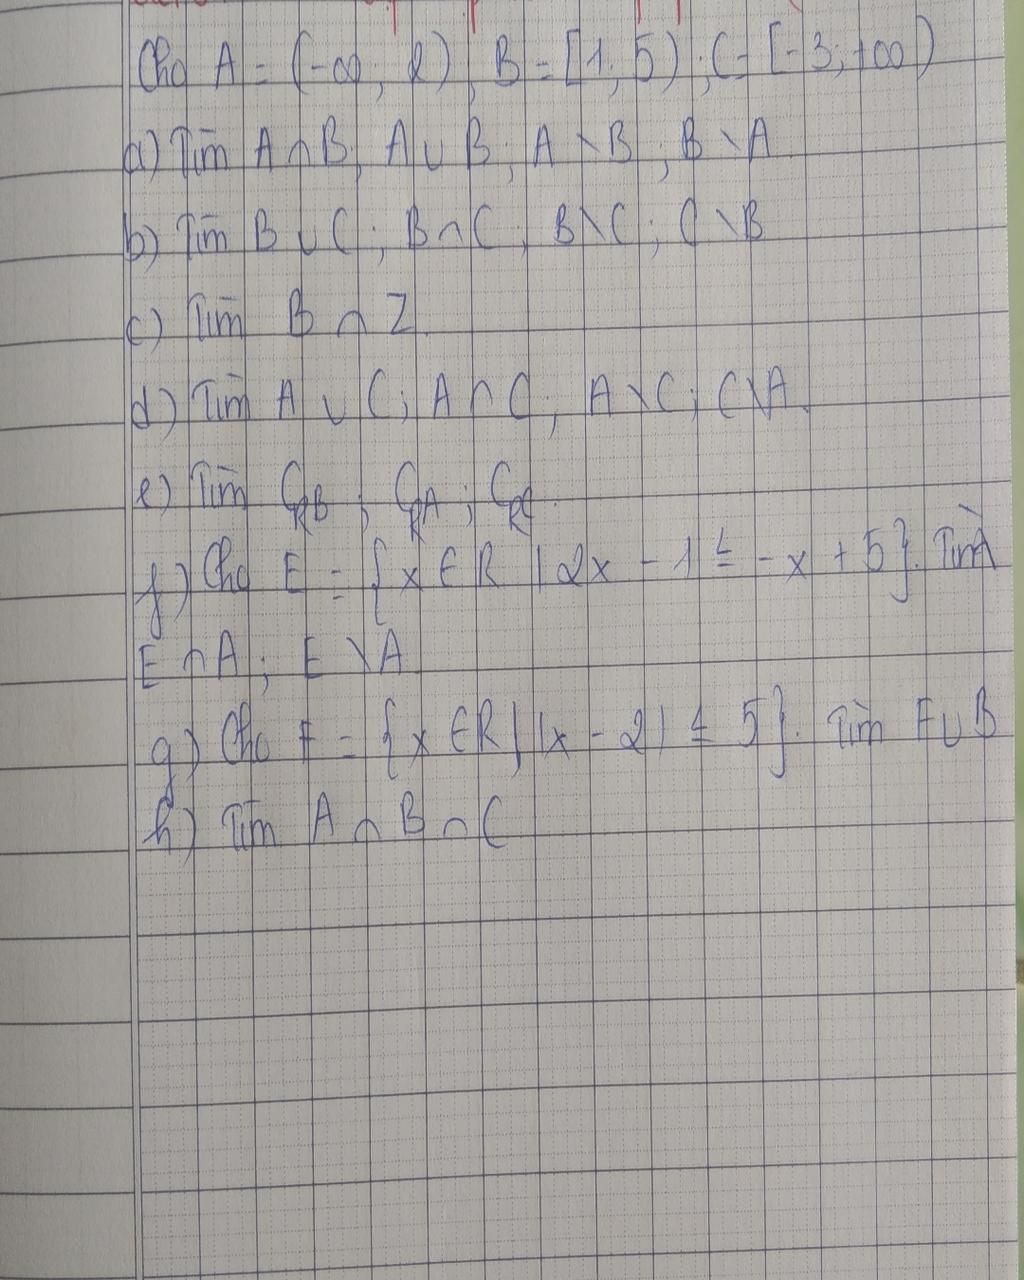 Cho A = (-∞; 2), B = [1; 5); C = [-3; +∞)
a) Tìm A ∩ B; A ∪ B; A \ B; B \ A
b) Tìm B ∪ C; B ∩ C; B \ C; C \ B
c) Tìm B ∩ Z.
d) Tìm A ∪ C; A ∩ C; A \ C; C \ A.
e) Tìm CRB; CRA; CRC.
f) Cho E = {x ∈ R | 2x - 1 ≤ -x + 5}. Tìm
E ∩ A; E \ A
g) Cho F = {x ∈ R | |x - 2| ≤ 5}. Tìm F ∪ B
h) Tìm A ∩ B ∩ C